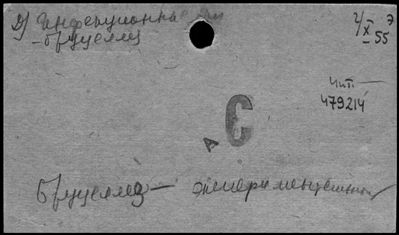 2) Инфекционная
– бруцеллез
2/X 55
Чит.
479214
Э
А
Бруцеллез – экспериментальный